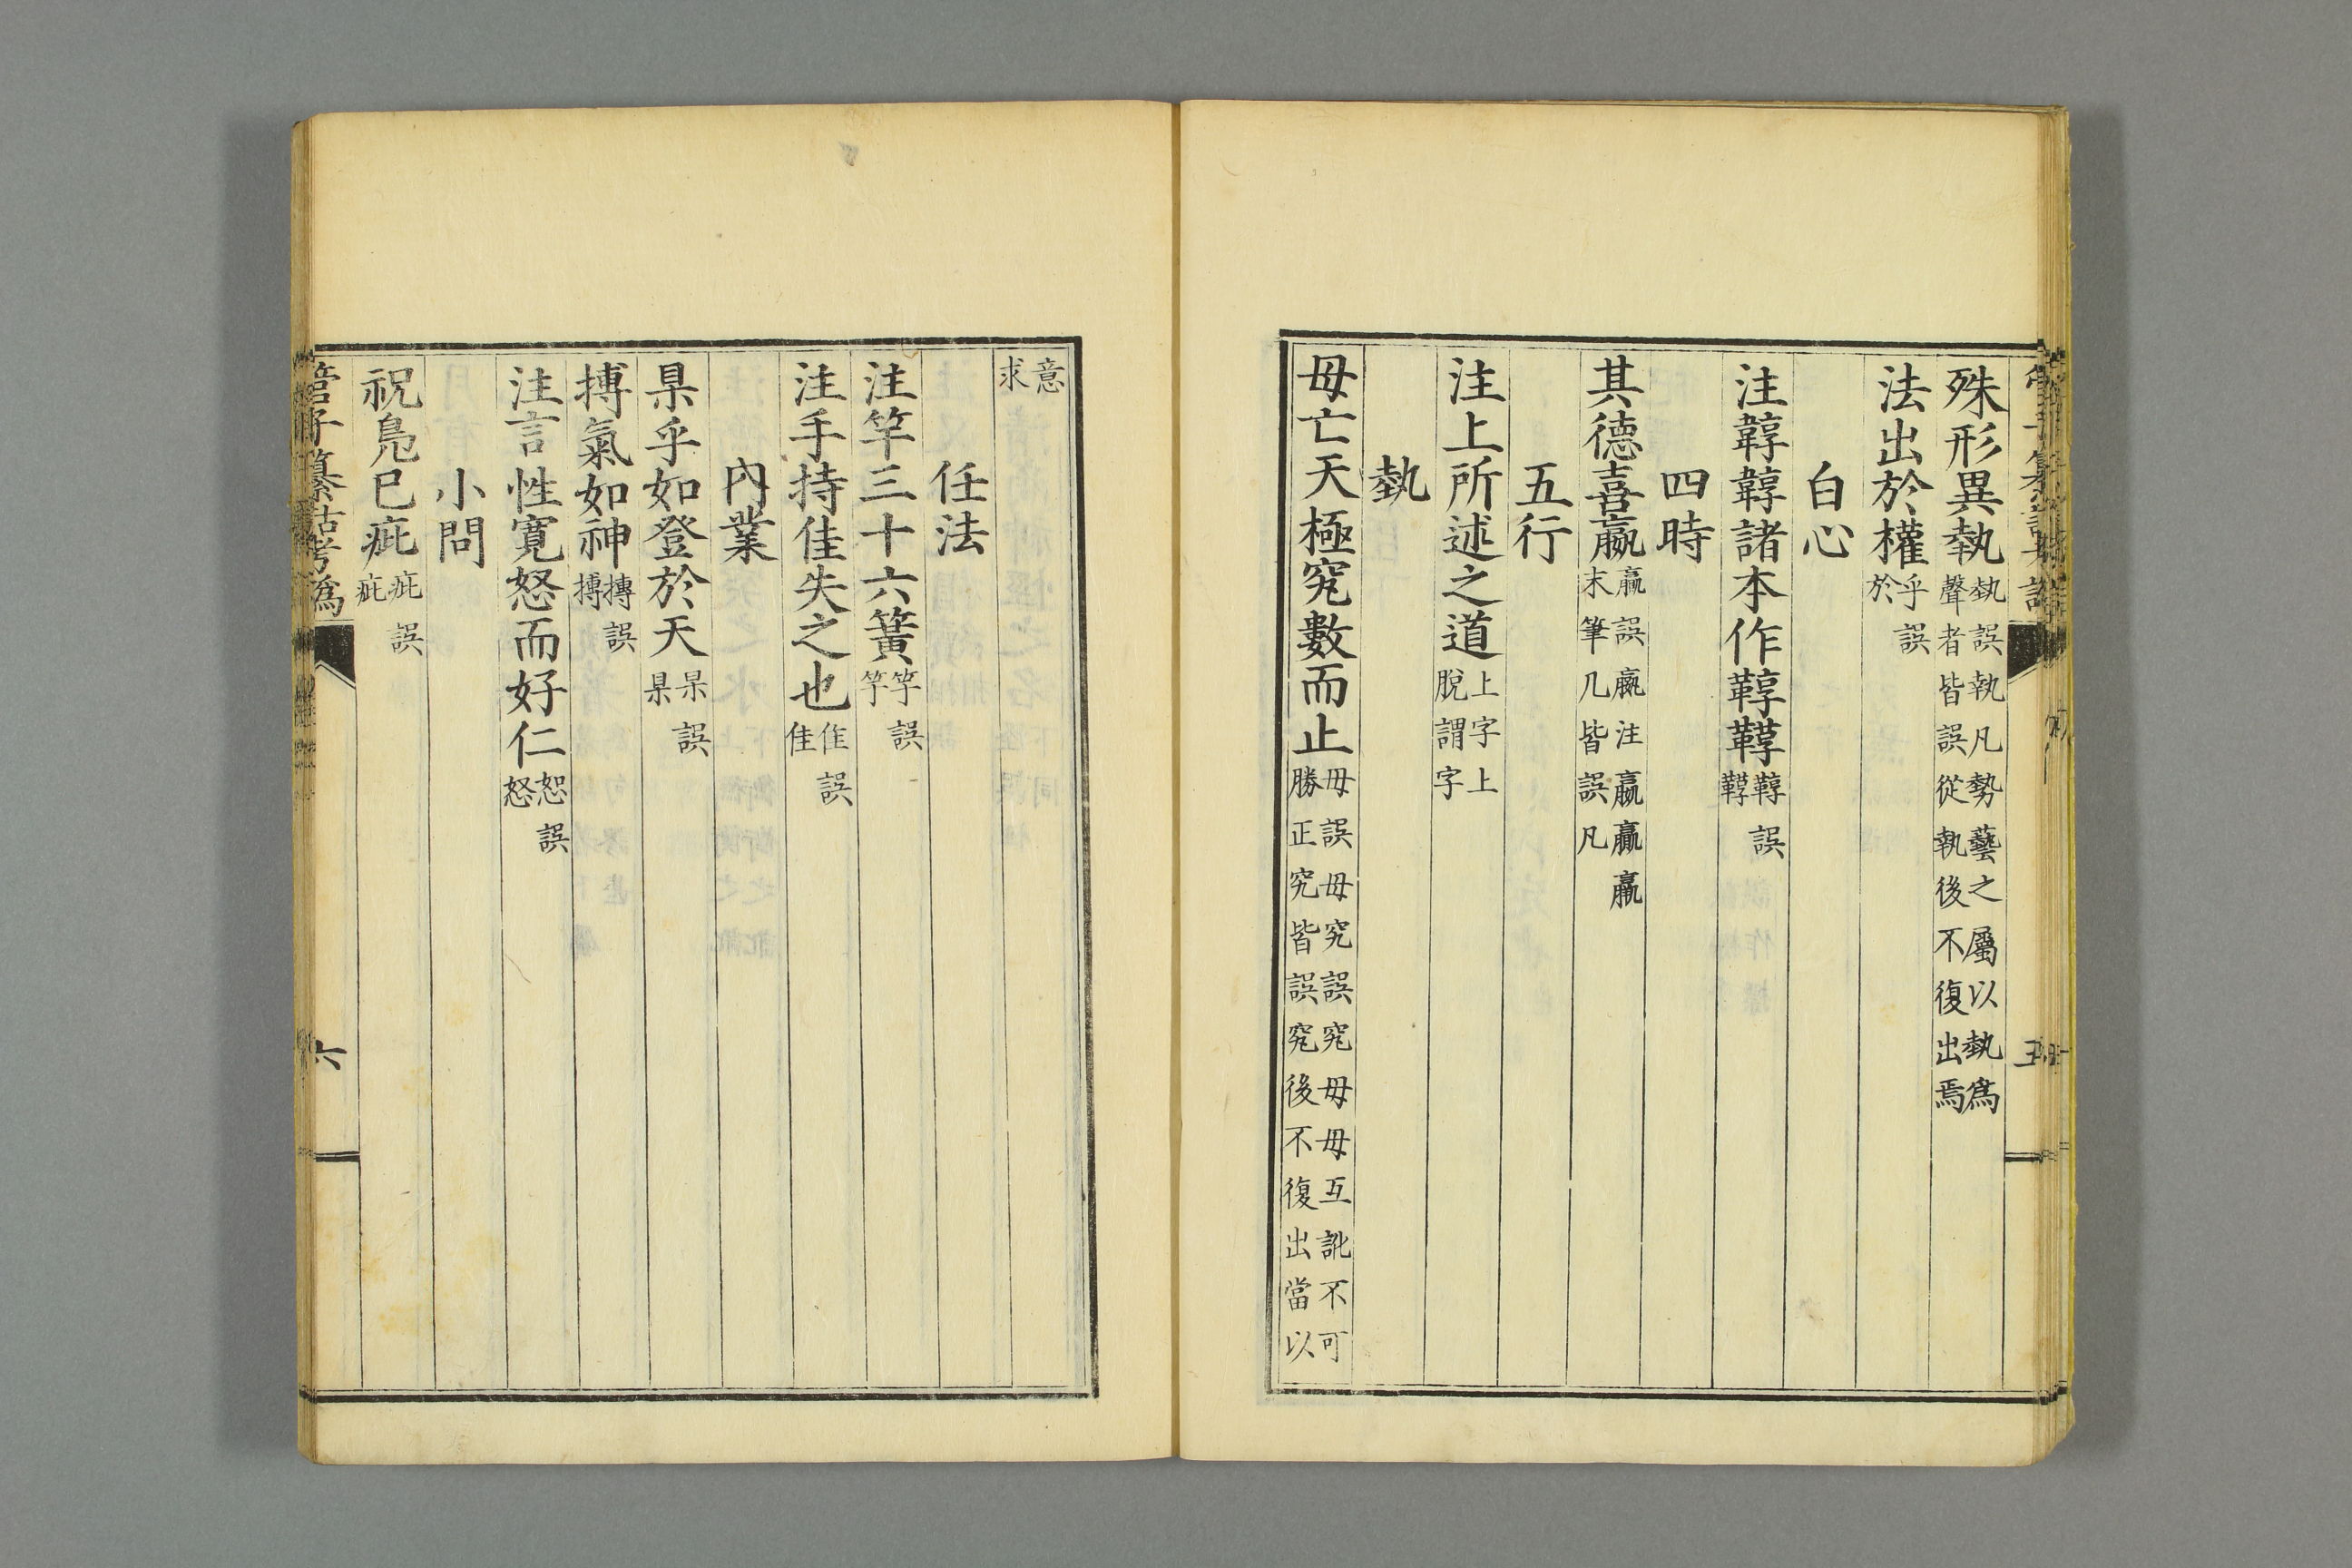 殊形異埶埶誤執凡勢藝之屬以埶爲
聲者皆誤從執後不復出焉
法出於權乎誤
於
白心
注韕韕諸本作鞟鞟鞟誤
鞟
四時
其德喜嬴嬴誤蠃注嬴贏蠃
末筆几皆誤凡
五行
注上所述之道上字上
脫謂字
埶
毋亡天極究數而止毋誤毋究誤究毋毋互訛不可
勝正究皆誤究後不復出當以
五
意
求
任法
注竽三十六簧竽誤
竽
注手持佳失之也隹誤
佳
內業
杲乎如登於天杲誤
杲
搏氣如神摶誤
搏
注言性寬怒而好仁恕誤
怒
小問
祝鳧巳疵疪誤
疵
管子纂詁考譌
六